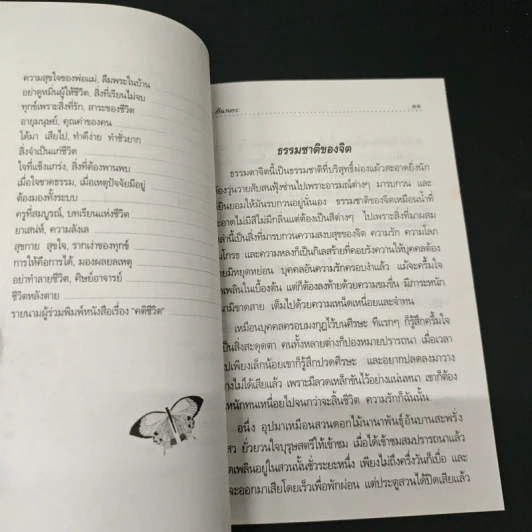 ความสุขใจของพ่อแม่, ลืมพระในบ้าน
อย่าดูหมิ่นผู้ให้ชีวิต, สิ่งที่เรียนไม่จบ
ทุกข์เพราะสิ่งที่รัก, สาระของชีวิต
อายุมนุษย์, คุณค่าของคน
ได้มา เสียไป, ทำดีง่าย ทำชั่วยาก
สิ่งจำเป็นแก่ชีวิต
ใจที่แข็งแกร่ง, สิ่งที่ต้องพานพบ
เมื่อใจขาดธรรม, เมื่อเหตุปัจจัยมีอยู่
ต้องมองทั้งระบบ
ครูที่สมบูรณ์, บทเรียนแห่งชีวิต
ยาเสน่ห์, ความลังเล
สุขกาย สุขใจ, รากเง่าของทุกข์
การให้คือการได้, มองผลยลเหตุ
อย่าทำลายชีวิต, ศิษย์อาจารย์
ชีวิตหลังตาย
รายนามผู้ร่วมพิมพ์หนังสือเรื่อง "คติชีวิต"
๑๑
ธรรมชาติของจิต
ธรรมดาจิตนี้เป็นธรรมชาติที่บริสุทธิ์ผ่องแผ้วสะอาดยิ่งนัก
องวุ่นวายสับสนฟุ้งซ่านไปเพราะอารมณ์ต่างๆ มารบกวน และ
ยินยอมให้มันรบกวนอยู่นั่นเอง ธรรมชาติของจิตเหมือนน้ำที่
ะอาดไม่มีสีไม่มีกลิ่นแต่ต้องเป็นสีต่างๆ ไปเพราะสิ่งที่มาผสม
ล่านี้เป็นสิ่งที่มารบกวนความสงบสุขของจิต ความรัก ความโลภ
โกรธ และความหลงก็เป็นกิเลสร้ายที่คอยรังควานให้บุคคลต้อง
ยมีหยุดหย่อน บุคคลอันความรักครอบงำแล้ว แม้จะครึ้มใจ
พลินในเบื้องต้น แต่ก็ต้องลงท้ายด้วยความขมขื่น มีภาระหนัก
มิขาดสาย เต็มไปด้วยความเหน็ดเหนื่อยและจำทน
เหมือนบุคคลครอบมงกุฎไว้บนศีรษะ ทีแรกๆ ก็รู้สึกครึ้มใจ
เป็นสิ่งสะดุดตา คนทั้งหลายต่างก็ปองหมายปรารถนา เมื่อเวลา
ไปเพียงเล็กน้อยเขาก็รู้สึกปวดศีรษะ และอยากปลดลงมาวาง
างไม่ได้เสียแล้ว เพราะมีลวดเหล็กขันไว้อย่างแน่นหนา เขาก็ต้อง
หนักทนเหนื่อยไปจนกว่าจะสิ้นชีวิต ความรักก็ฉันนั้น
อนึ่ง อุปมาเหมือนสวนดอกไม้นานาพันธุ์อันบานสะพรั่ง
สว ยั่วยวนใจบุรุษสตรีให้เข้าชม เมื่อได้เข้าชมสมปรารถนาแล้ว
ดเพลินอยู่ในสวนนั้นชั่วระยะหนึ่ง เพียงไม่ถึงครึ่งวันก็เบื่อ และ
จะออกมาเสียโดยเร็วเพื่อพักผ่อน แต่ประตูสวนได้ปิดเสียแล้ว